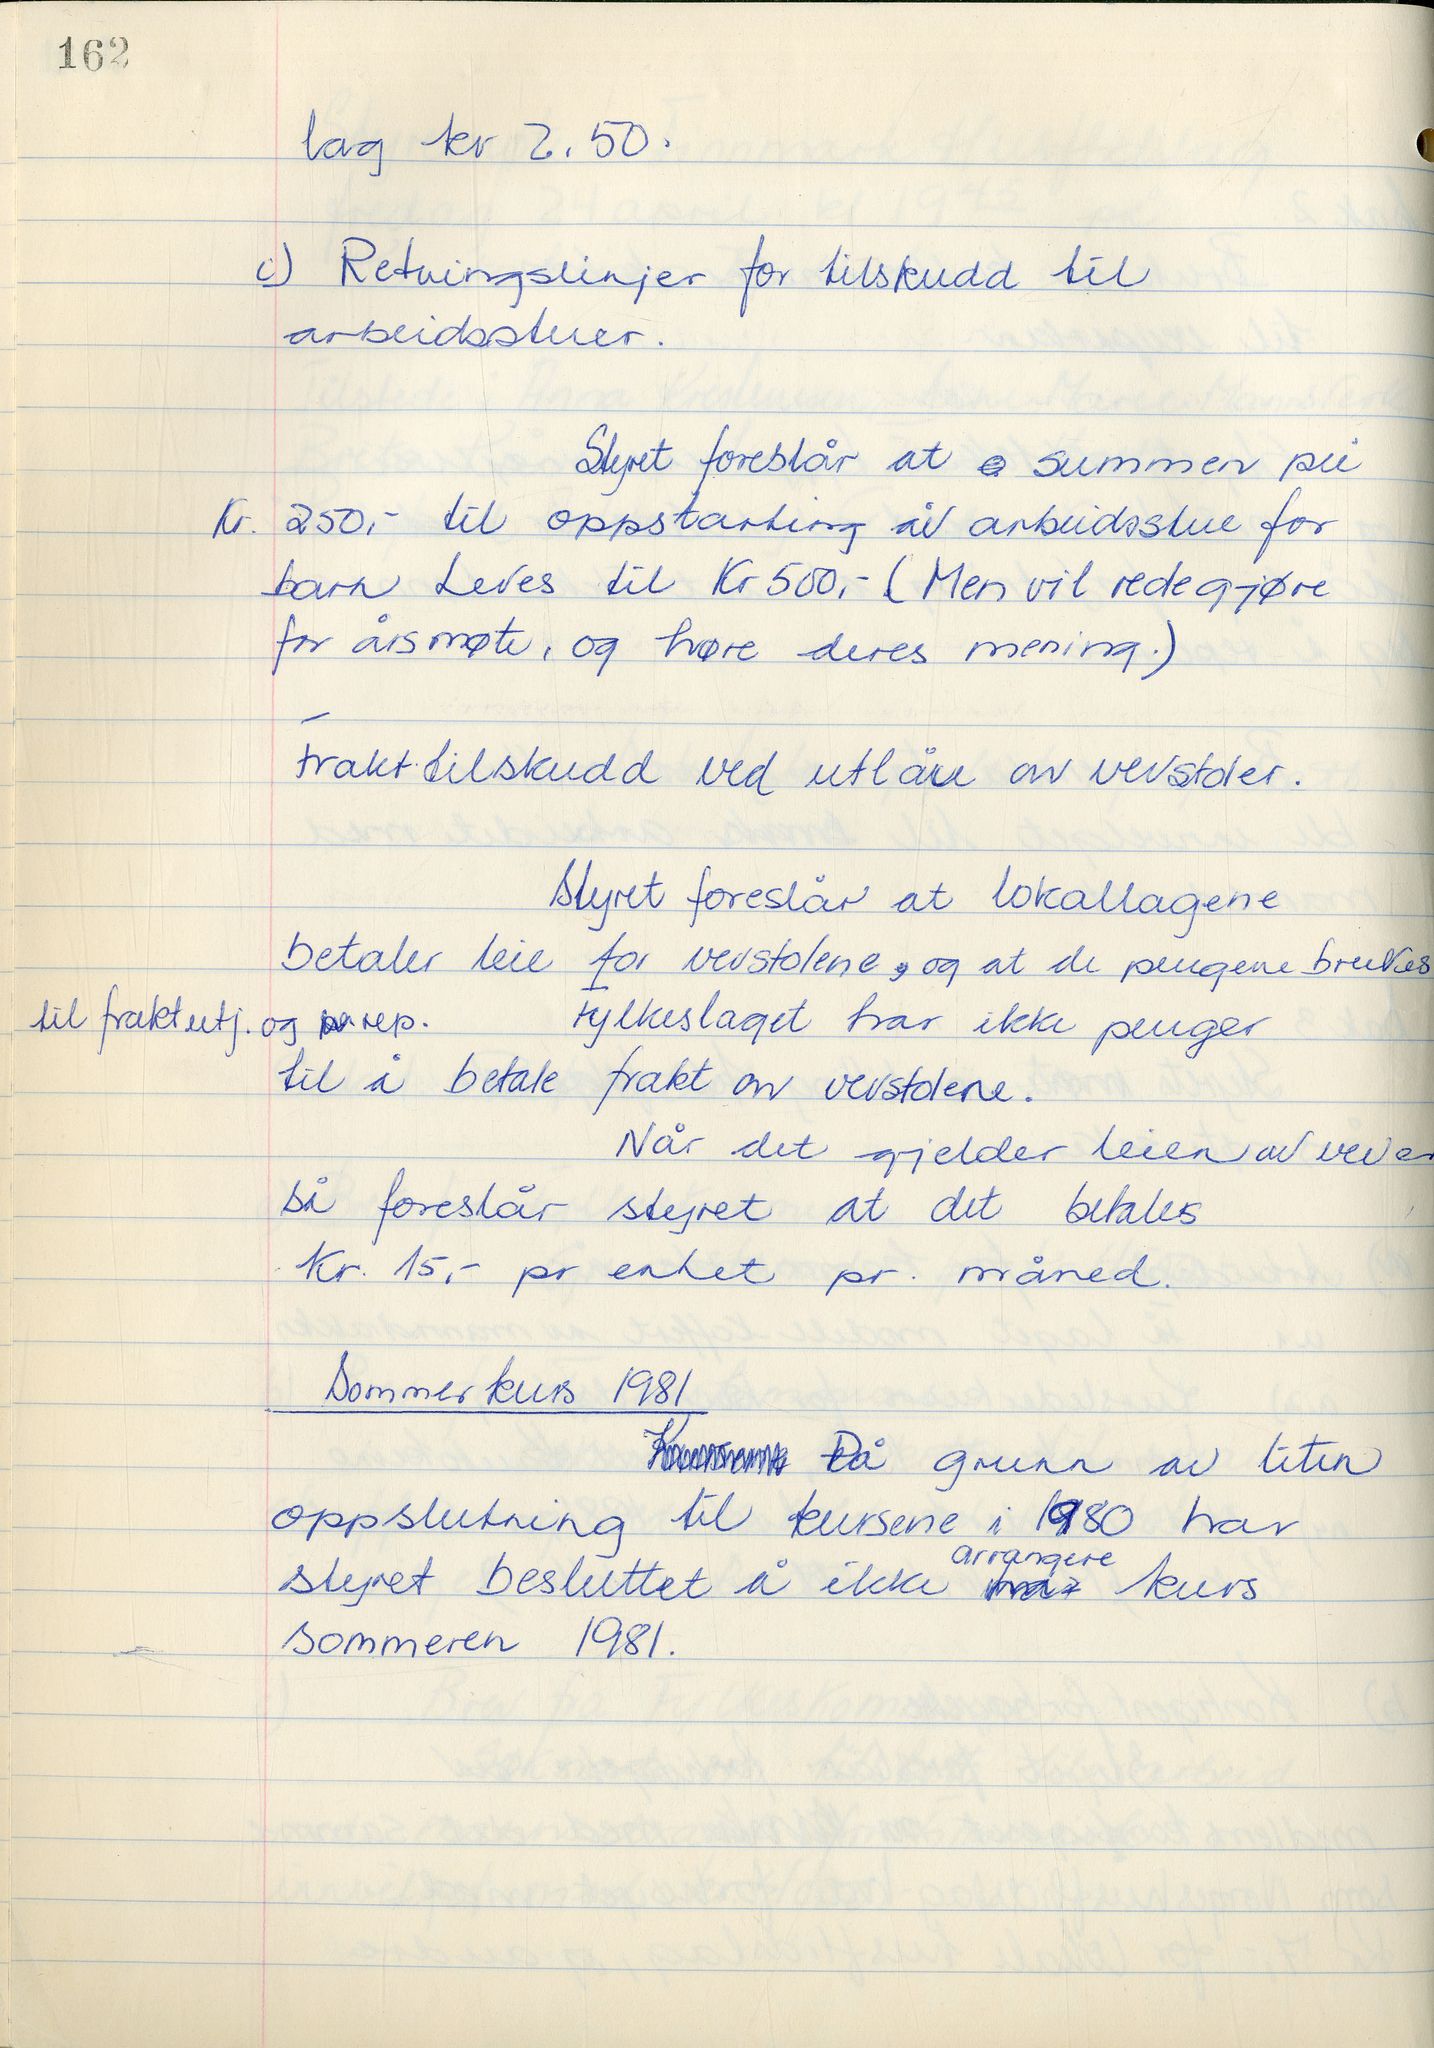 162
lag kr 2.50.
c) Retningslinjer for tilskudd til
arbeidsstuer.
Styret foreslår at summen på
Kr. 250,- til oppstarting av arbeidsstue for
barn heves til Kr 500,- (Men vil redegjøre
for årsmøte, og høre deres mening.)
Frakttilskudd ved utlån av vevstoler.
Styret foreslår at lokallagene
betaler leie for vevstolene, og at de pengene brukes
til fraktutj. og rep. Fylkeslaget har ikke penger
til å betale frakt av vevstolene.
Når det gjelder leien av vever
så foreslår styret at det betales
Kr. 15,- pr enhet pr. måned.
Sommerkurs 1981
På grunn av liten
oppslutning til kursene i 1980 har
styret besluttet å ikke arrangere kurs
sommeren 1981.